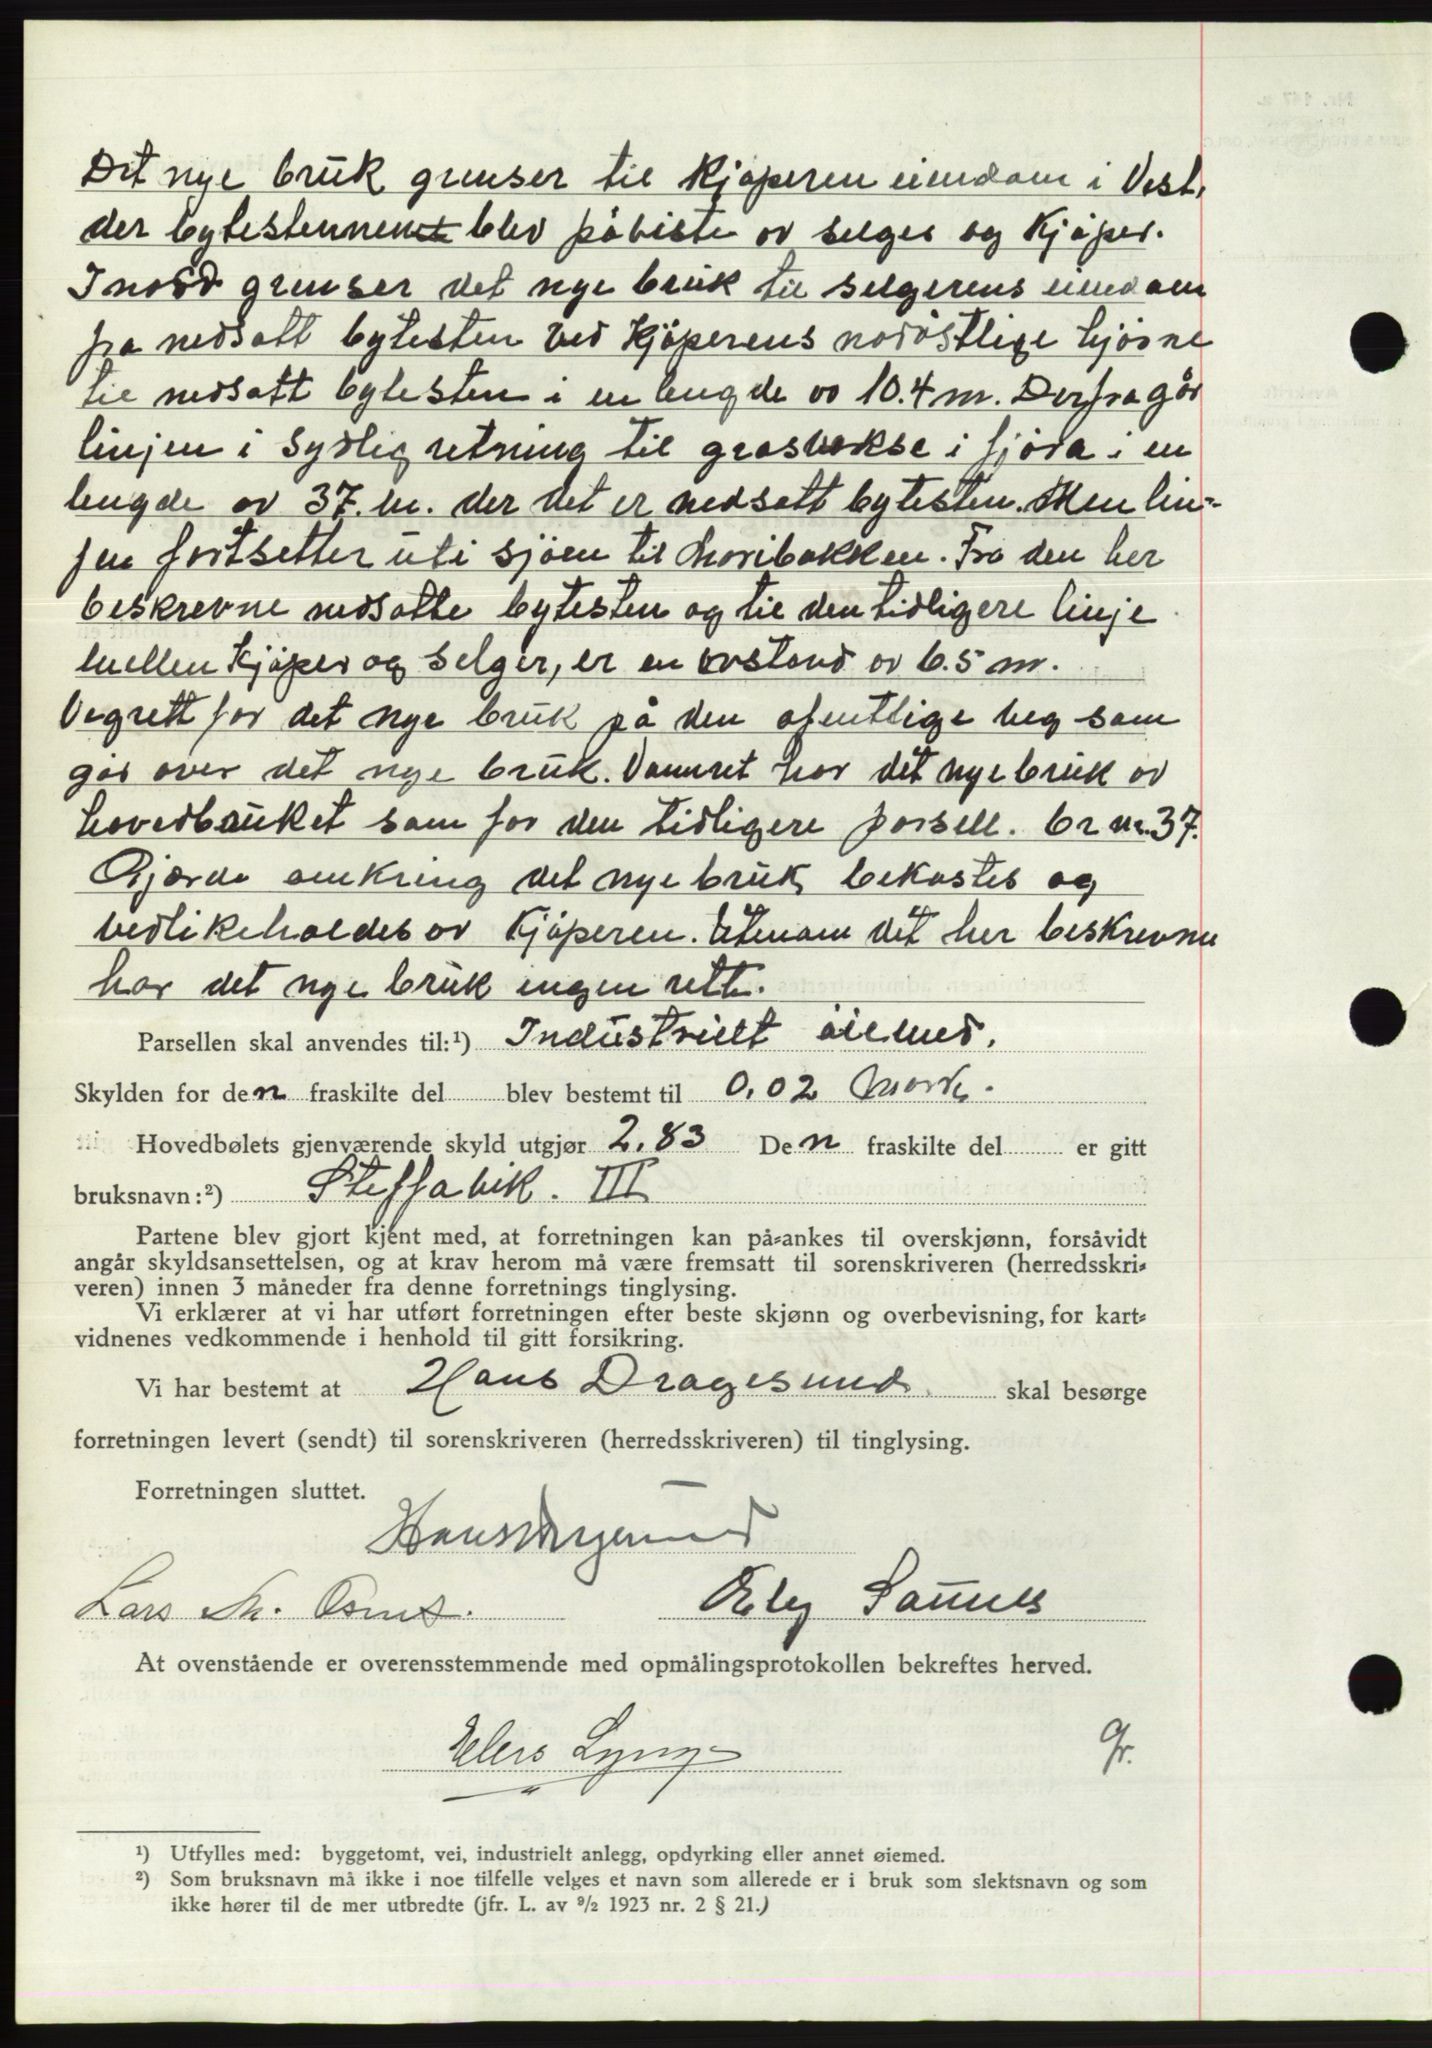 Det nye bruk grenser til kjøperen eiendom i Vest,
der bytestennene blev påviste av selger og kjøper.
I nord grenser det nye bruk til selgerens eiendom
fra nedsatt bytesten ved kjøperens nordøstlige hjørne
til nedsatt bytesten i en lengde av 10.4 m. Derfra går
linjen i sydlig retning til grasvekse i fjøra i en
lengde av 37. m. der det er nedsatt bytesten. Men lin-
jen fortsetter uti sjøen til maribakken. Fra den her
beskrevne nedsatte bytesten og til den tidligere linje
mellen kjøper og selger, er en avstand av 6.5 m.
Vegrett for det nye bruk på den ofentlige veg som
går over det nye bruk. Vannret har det nye bruk av
hovedbruket som for den tidligere parsell. br nr. 37.
Gjerde omkring det nye bruk bekostes og
vedlikeholdes av kjøperen. Utenom det her beskrevne
har det nye bruk ingen rett.
Parsellen skal anvendes til:¹) Industrielt øiemed.
Skylden for den fraskilte del blev bestemt til 0,02 mark.
Hovedbølets gjenværende skyld utgjør 2,83 Den fraskilte del er gitt
bruksnavn:²) Steffavik. III
Partene blev gjort kjent med, at forretningen kan på-ankes til overskjønn, forsåvidt
angår skyldsansettelsen, og at krav herom må være fremsatt til sorenskriveren (herredsskri-
veren) innen 3 måneder fra denne forretnings tinglysing.
Vi erklærer at vi har utført forretningen efter beste skjønn og overbevisning, for kart-
vidnenes vedkommende i henhold til gitt forsikring.
Vi har bestemt at Hans Dragesund skal besørge
forretningen levert (sendt) til sorenskriveren (herredsskriveren) til tinglysing.
Forretningen sluttet.
Hans Dragesund
Lars M. Osnes. Elly Saunes
At ovenstående er overensstemmende med opmålingsprotokollen bekreftes herved.
Elers Lynge
gr.
¹) Utfylles med: byggetomt, vei, industrielt anlegg, opdyrking eller annet øiemed.
²) Som bruksnavn må ikke i noe tilfelle velges et navn som allerede er i bruk som slektsnavn og som
ikke hører til de mer utbredte (jfr. L. av ⁹/₂ 1923 nr. 2 § 21.)